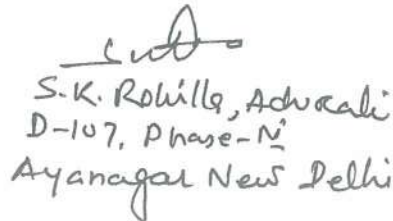 S.K. Rohilla, Advocate
D-107, Phase-IV
Ayanagar New Delhi